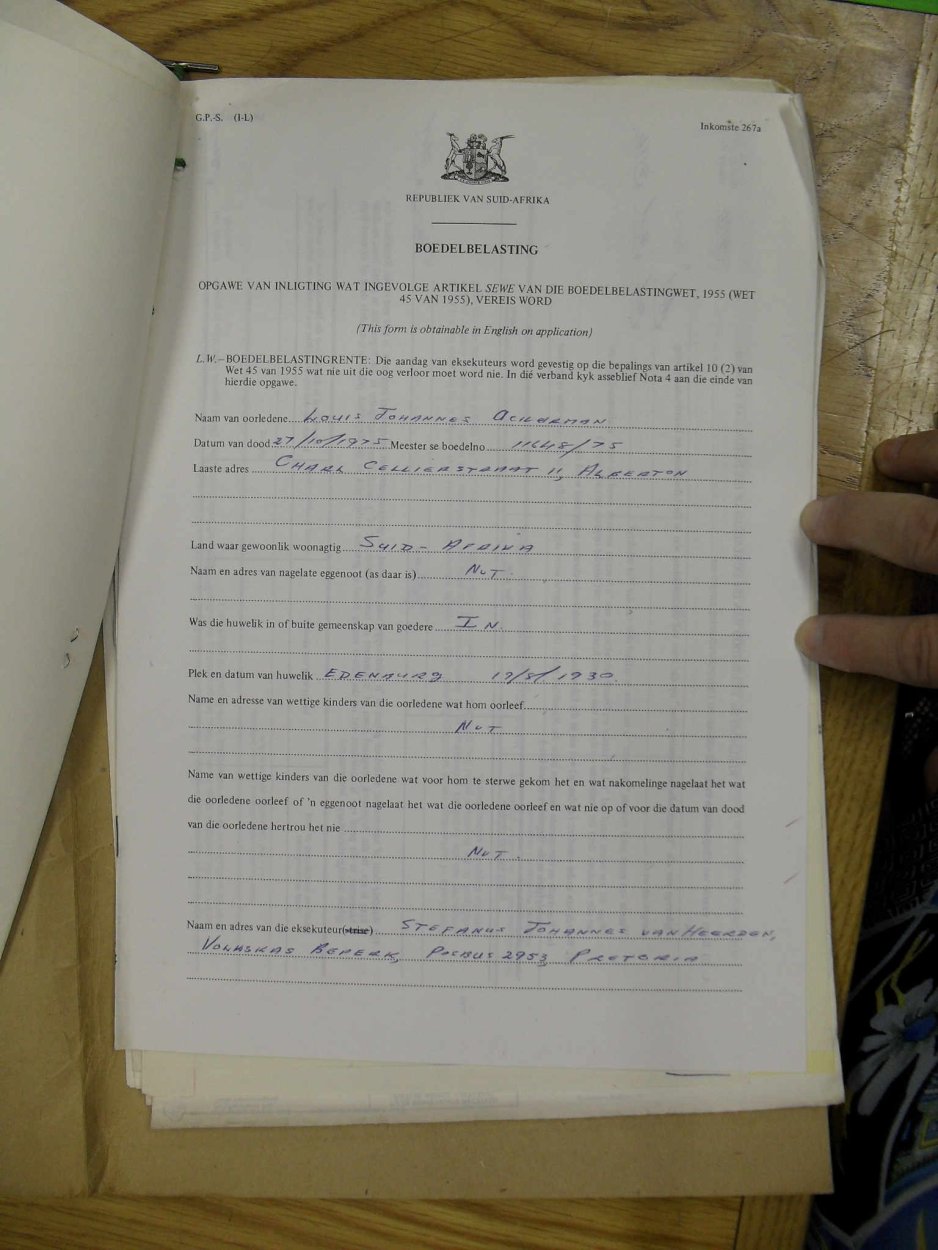 G.P.-S. (I-L)
Inkomste 267a
REPUBLIEK VAN SUID-AFRIKA
BOEDELBELASTING
OPGAWE VAN INLIGTING WAT INGEVOLGE ARTIKEL SEWE VAN DIE BOEDELBELASTINGWET, 1955 (WET
45 VAN 1955), VEREIS WORD
(This form is obtainable in English on application)
L.W.–BOEDELBELASTINGRENTE: Die aandag van eksekuteurs word gevestig op die bepalings van artikel 10 (2) van
Wet 45 van 1955 wat nie uit die oog verloor moet word nie. In dié verband kyk asseblief Nota 4 aan die einde van
hierdie opgawe.
Naam van oorledene Louis Johannes Ackerman
Datum van dood 27/10/1975 Meester se boedelno. 11648/75
Laaste adres Charl Cellierstraat 11, Alberton
Land waar gewoonlik woonagtig Suid-Afrika
Naam en adres van nagelate eggenoot (as daar is) Nvt.
Was die huwelik in of buite gemeenskap van goedere In.
Plek en datum van huwelik Edenburg 19/8/1930
Name en adresse van wettige kinders van die oorledene wat hom oorleef
Nvt
Name van wettige kinders van die oorledene wat voor hom te sterwe gekom het en wat nakomelinge nagelaat het wat
die oorledene oorleef of 'n eggenoot nagelaat het wat die oorledene oorleef en wat nie op of voor die datum van dood
van die oorledene hertrou het nie
Nvt.
Naam en adres van die eksekuteur(strise) Stefanus Johannes van Heerden,
Volkskas Beperk, Posbus 2953, Pretoria